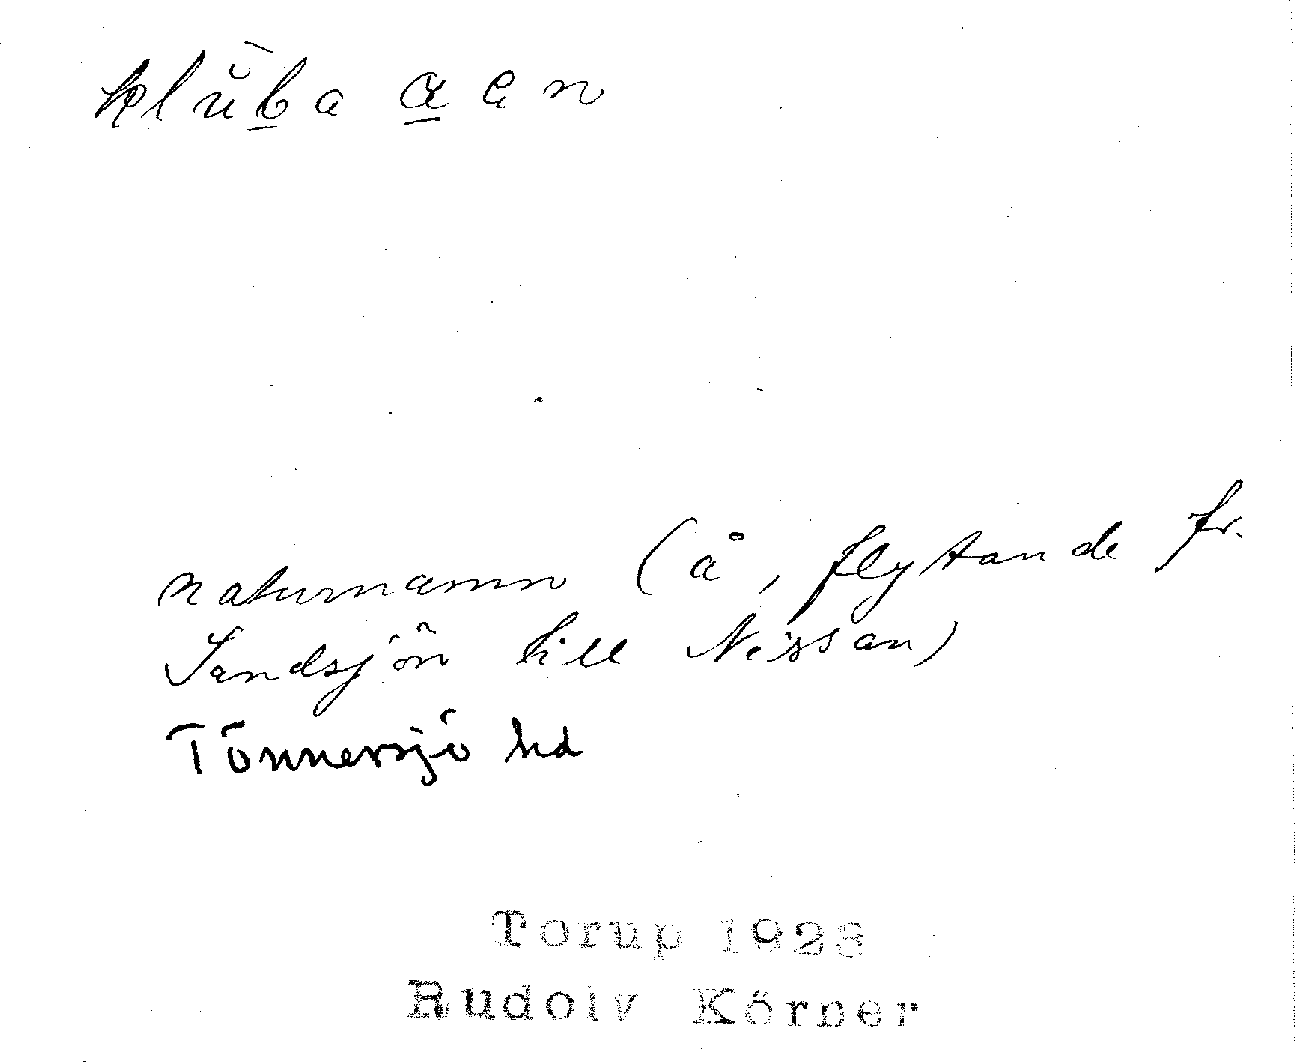 klŭba a en
naturnamn (å, flytande fr.
Sandsjön till Nissan)
Tönnersjö hd
Torup 1928
Rudolv Körner